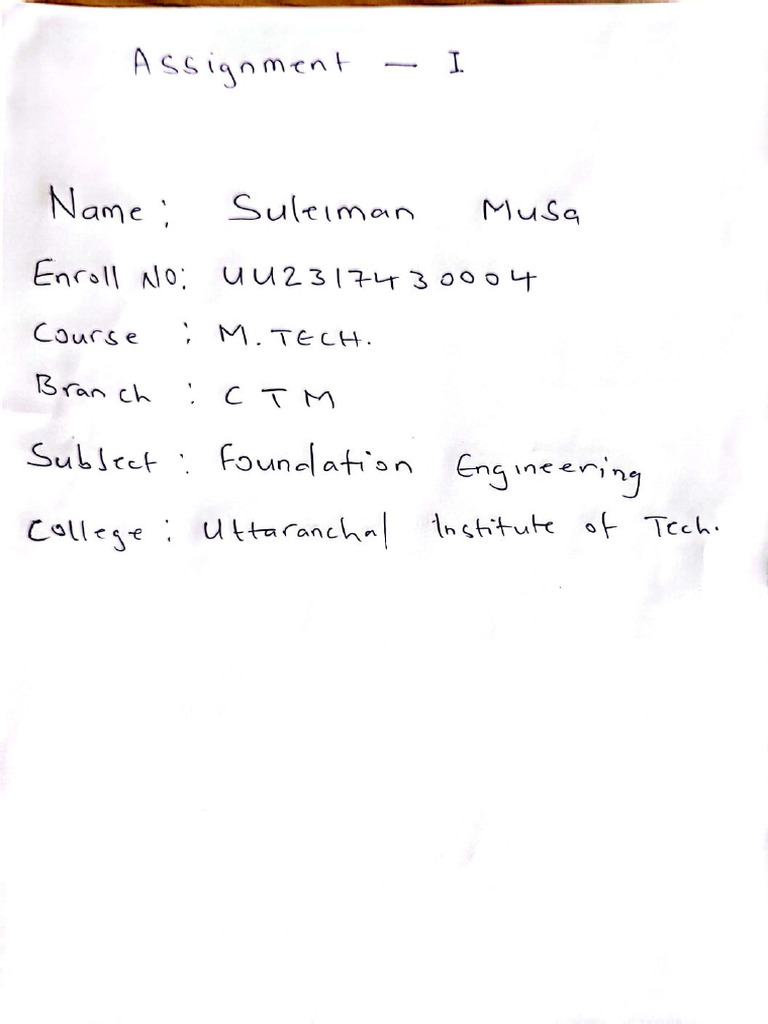 Assignment - I
Name: Suleiman Musa
Enroll No: UU2317430004
Course : M.TECH.
Branch : C T M
Subject : Foundation Engineering
College : Uttaranchal Institute of Tech.